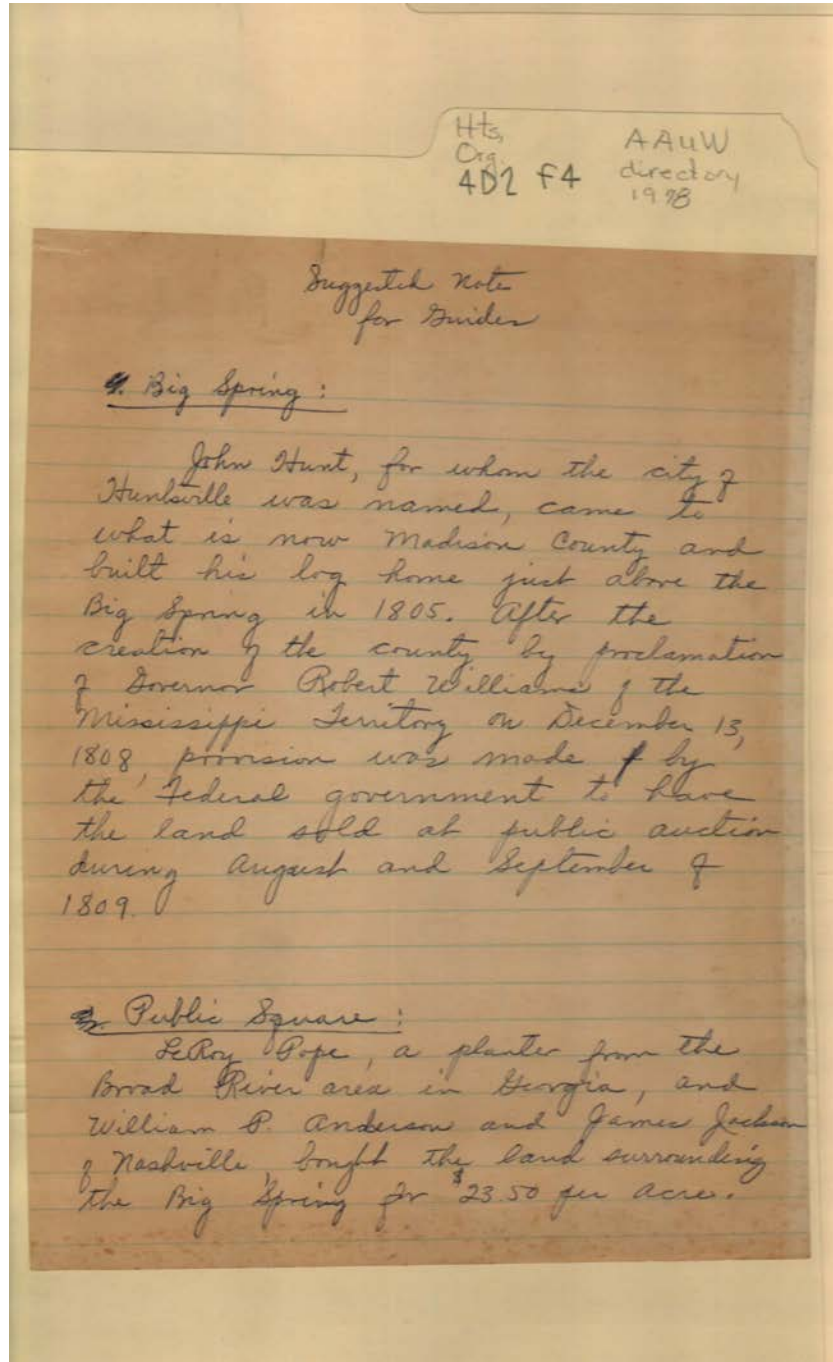 Hts,
Org.
4D2 F4
AAUW
directory
1978
Suggested Note
for Guides
Big Spring:
John Hunt, for whom the city of
Huntsville was named, came to
what is now Madison County and
built his log home just above the
Big Spring in 1805. After the
creation of the county by proclamation
of Governor Robert Williams of the
Mississippi Territory on December 13,
1808, provision was made by
the Federal government to have
the land sold at public auction
during August and September of
1809.
Public Square:
LeRoy Pope, a planter from the
Broad River area in Georgia, and
William P. Anderson and James Jackson
of Nashville, bought the land surrounding
the Big Spring for $23.50 per acre.